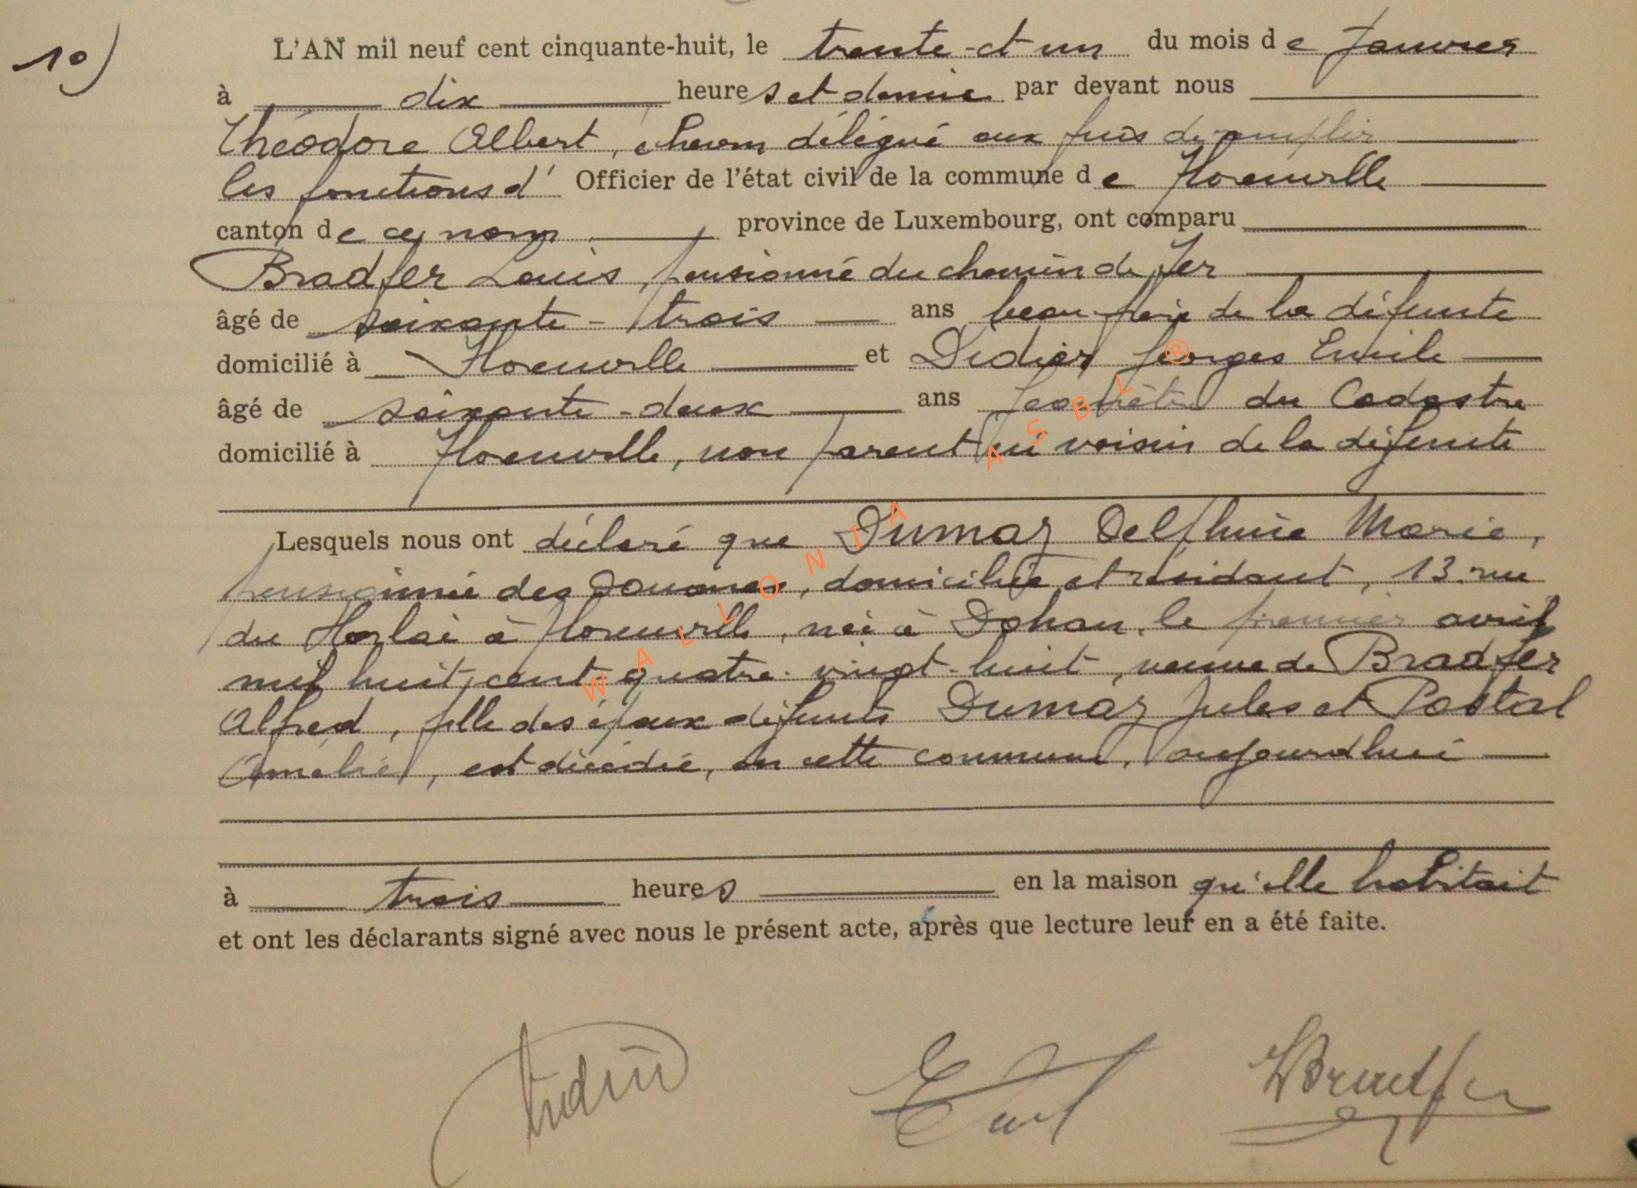 10)
L'AN mil neuf cent cinquante-huit, le trente-et un du mois de Janvier
à dix heures et demie par devant nous
Théodore Albert, échevin délégué aux fins de remplir
les fonctions d' Officier de l'état civil de la commune de Florenville
canton de ce nom province de Luxembourg, ont comparu
Bradfer Louis, pensionné du chemin de fer
âgé de soixante-trois ans beau-frère de la défunte
domicilié à Florenville et Didier Georges Emile
âgé de soixante-deux ans Géomètre du Cadastre
domicilié à Florenville, non parent ni voisin de la défunte
Lesquels nous ont déclaré que Dumaz Delphine Marie,
pensionnée des Douanes, domiciliée et résidant, 13 rue
du à Florenville, née à Dohan, le premier avril
mil huit cent quatre-vingt-huit, veuve de Bradfer
Alfred, fille des époux défunts Dumaz Jules et Postal
Amélie, est décédée, en cette commune, aujourdhui
à trois heures en la maison qu'elle habitait
et ont les déclarants signé avec nous le présent acte, après que lecture leur en a été faite.
WALLONIA ASBL ®